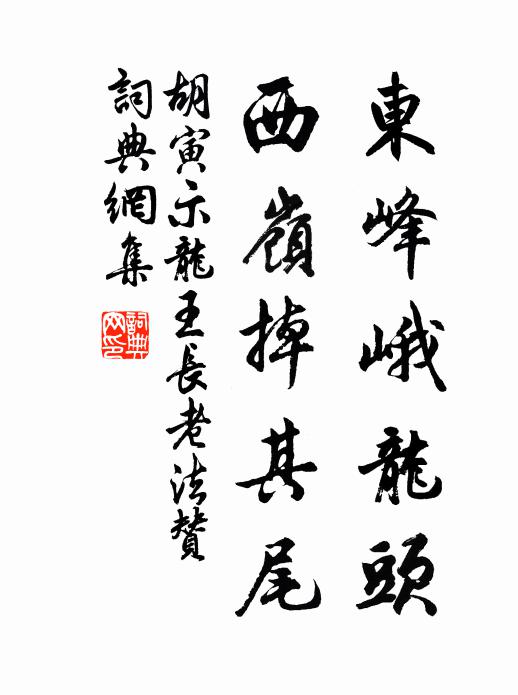 東峰峨龍頭
西嶺掉其尾
胡寅示龍王長老法贊
詞典網集
詞典網印